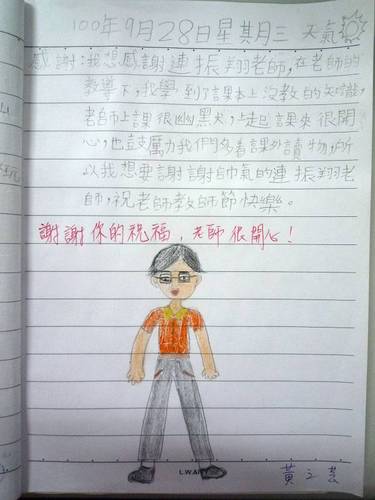 100年9月28日星其月三 天氣
感謝:我想感謝連振翔老師,在老師的
教導下,我學到了課本上沒教的知識,
老師上課很幽黑犬,上起課來很開
心,也鼓厲力我們多看課外讀物,所
以我想要謝謝帥氣的連振翔老
師,祝老師教師節快樂。
謝謝你的祝福,老師很開心!
L.W.A